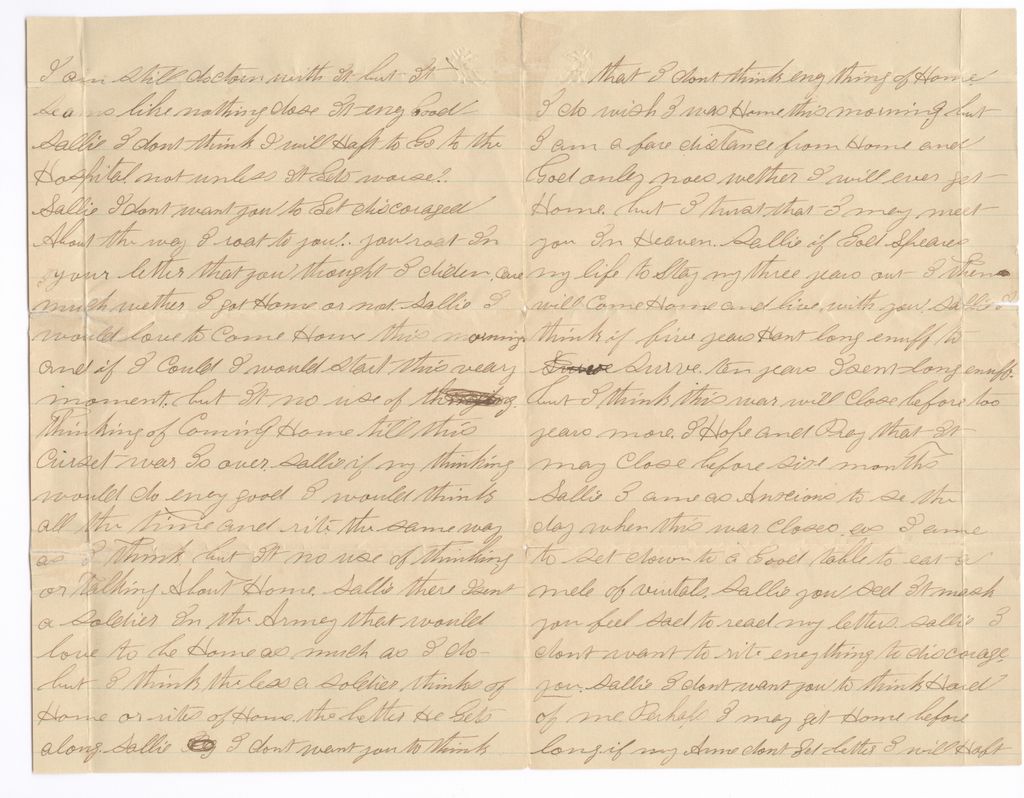 I am still doctorn with It but It
seams like nothing dose It eny Good
Sallie I dont think I will Haft to Go to the
Hospital not unless It Gets worse.
Sallie I dont want you to Get discoraged
About the way I roat to you. you roat In
your letter that you thought I diden care
much wether I got Home or not. Sallie I
would love to Come Home this morning
and if I Could I would start this veary
moment. but It no use of
Thinking of Coming Home till this
Curset war Is over. Sallie if my thinking
would do eney good I would think
all the time and rite the same way
as I think but It no use of thinking
or talking About Home. Sallie there Isent
a soldier In the Armey that would
love to be Home as much as I do
but I think the less a soldier thinks of
Home or rites of Home the better He Gets
along. Sallie I dont want you to think
that I dont think eny thing of Home
I do wish I was Home this morning but
I am a fare distance from Home and
God onley noes wether I will ever get
Home. but I trust that I mey meet
you In Heaven. Sallie if God Speares
my life to Stay my three years out I then
will Come Home and live with you. Sallie I
think if five years Hant long enuff to
surve. ten years Isent long enuff.
but I think this war will Close before too
years more. I Hope and Pray that It
may Close before six months
Sallie I ame as Anxcions to se the
day when this war Closes as I ame
to set down to a Good table to eat a
mele of vicitals. Sallie you sed It mask
you feel sad to read my letters Sallie I
dont want to rite enything to discorage
you. Sallie I dont want you to think Hard
of me Perhaps I may get Home before
long if my Arme dont Get better I will Haft